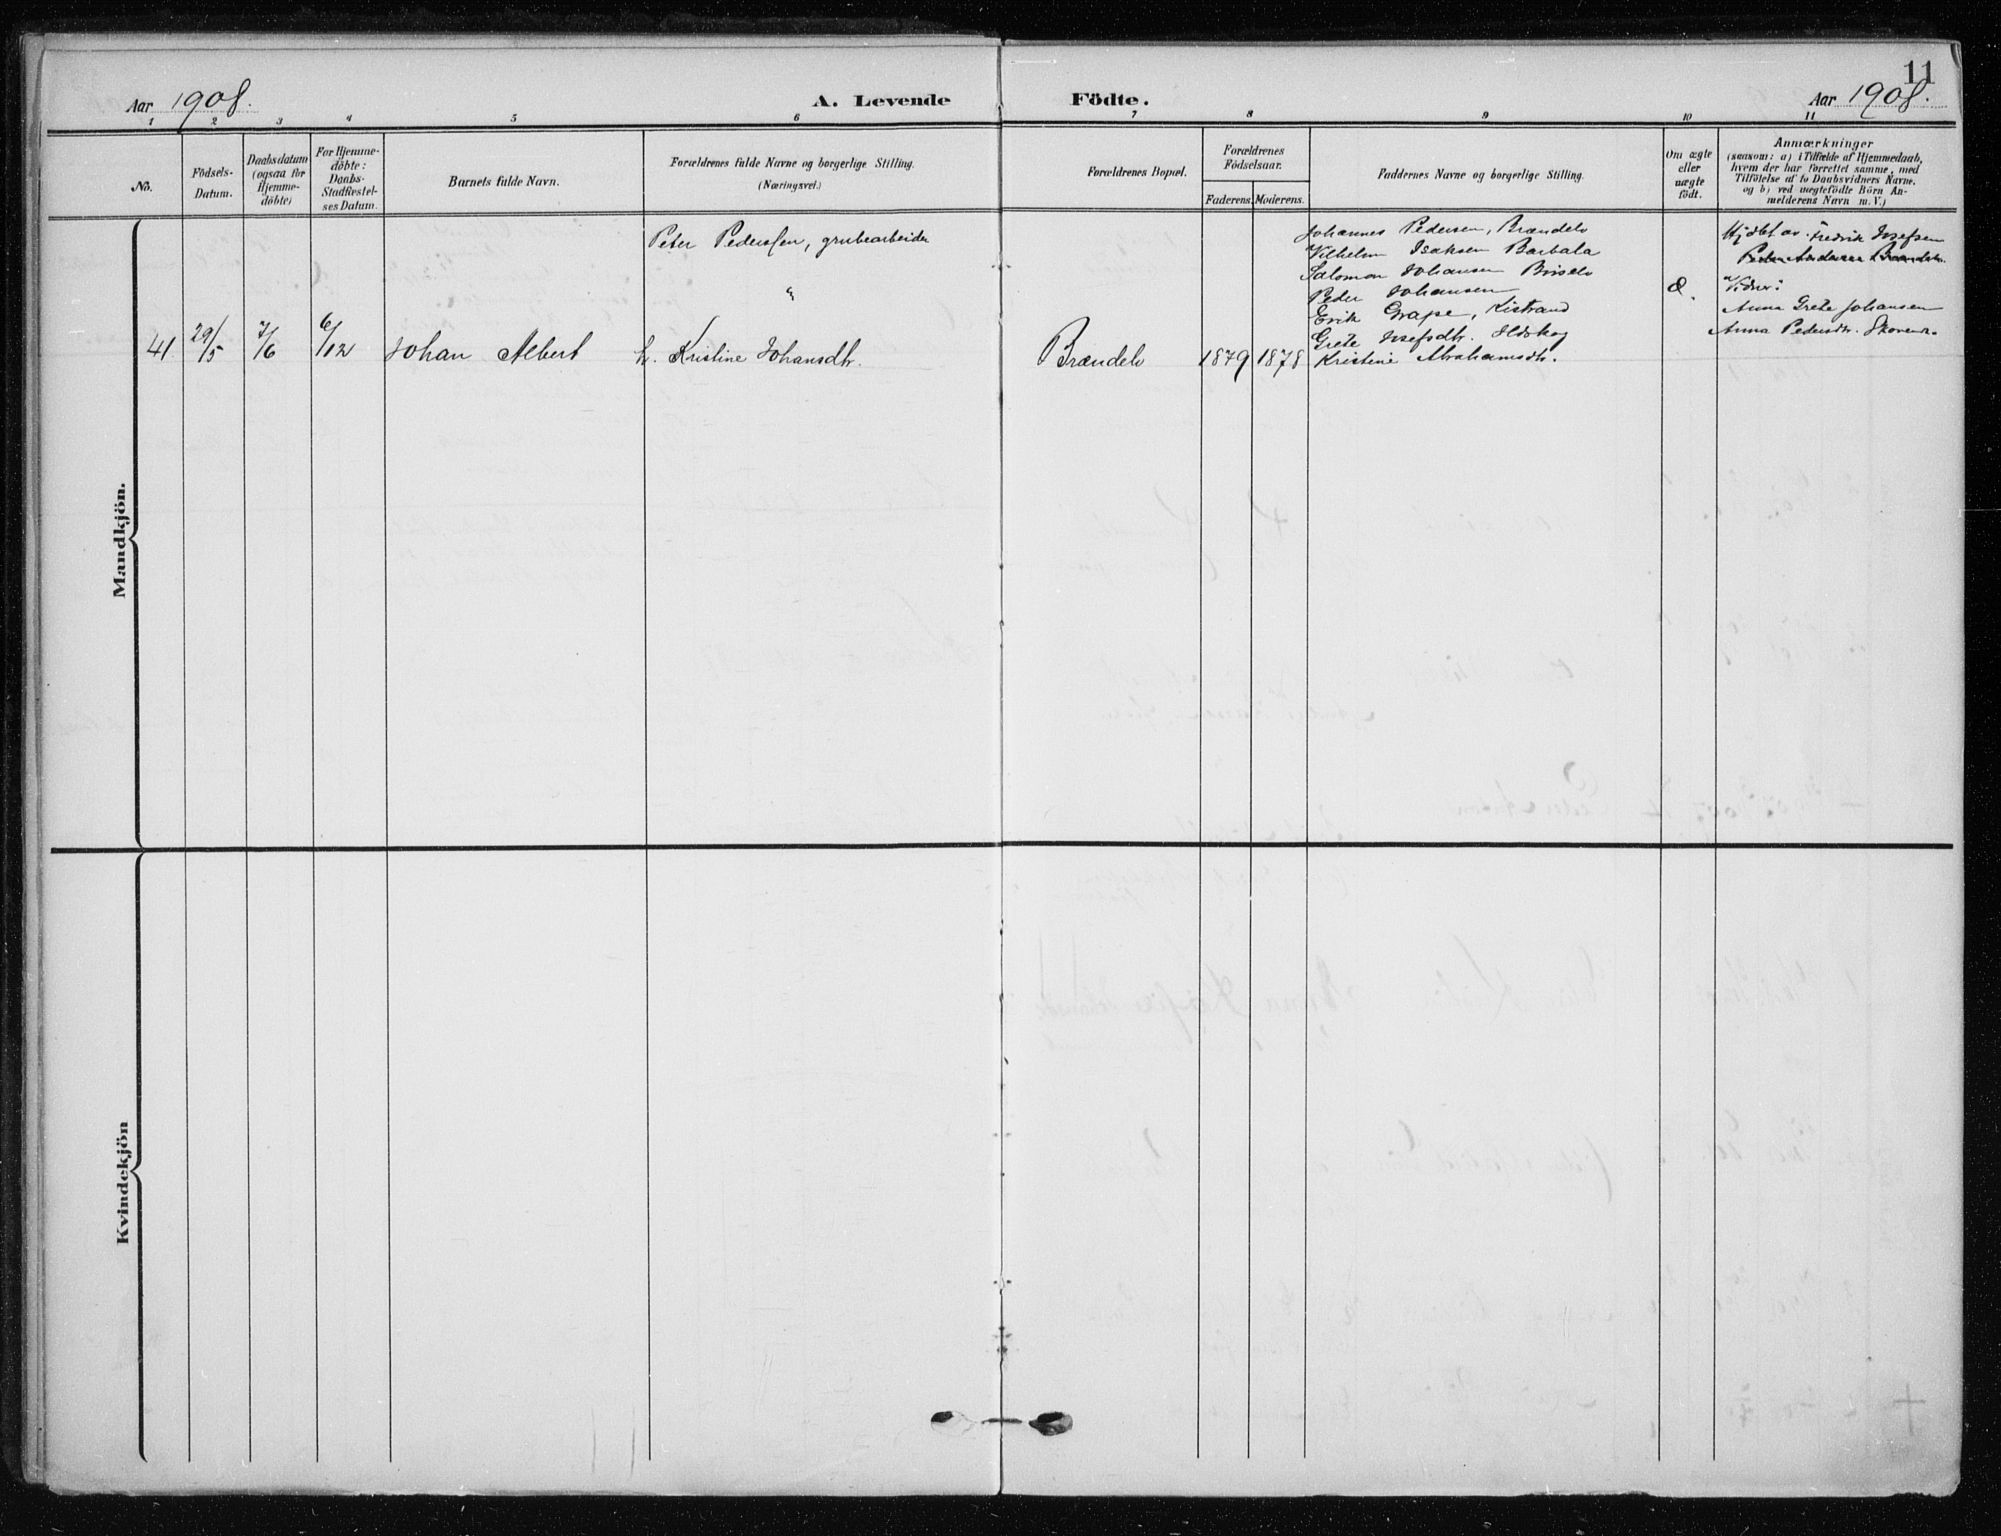 11
Aar 1908.
A. Levende Födte.
Aar 1908.
1 2 3 4 5 6 7 8 9 10 11
No.
Födsels-
Datum.
Daabsdatum
(ogsaa for
Hjemme-
döbte)
For Hjemme-
döbte:
Daabs-
Stadfæstel-
ses Datum.
Barnets fulde Navn.
Forældrenes fulde Navne og borgerlige Stilling.
(Næringsvei.)
Forældrenes Bopæl.
Forældrenes
Födselsaar.
Faderens. Moderens.
Faddernes Navne og borgerlige Stilling.
Om ægte
eller
uægte
födt.
Anmærkninger
(saasom: a) i Tilfælde af Hjemmedaab,
hvem der har forrettet samme, med
Tilföielse af to Daabsvidners Navne,
og b) ved uægtefödte Börn An-
melderens Navn m. V.)
Mandkjön.
41 29/5 7/6 6/12 Johan Albert
Peter Pederssen, grubearbeider
h. Kristine Johansdtr.
Brændelv 1879 1878
Johannes Pedersen, Brændelv
Vilhelm Isaksen Barbala
Salomon Johansen
Peder Johansen
Erik Grape, Kistrand
Grete Josefsdtr.
Kristine Abrahamsdtr.
Æ.
Hjdbt av Fredrik Josefsen
Vidner:
Anna Grete Johansen
Anna Pedersdtr.
Kvindekjön